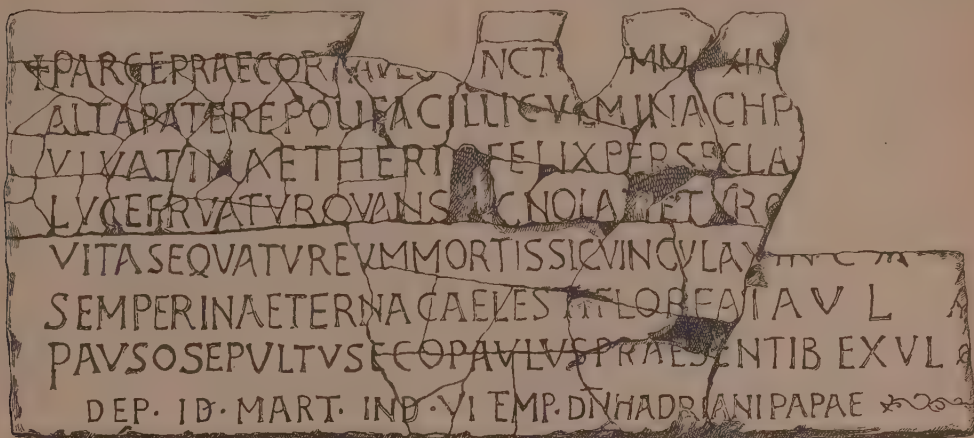 +PARCEPRAECOR NCT MM XIN
ALTAPATEREPOLIFACILLICVLMINACHP
VIVATINAETHERI FELIXPERSECLA
LVCEFRVATVROVANS
VITASEQVATVREVMMORTISSICVINCVLA
SEMPERINAETERNACAELESTI FLOREATAVL
PAVSOSEPVLTVSECOPAVLVSPRAESENTIB EXVL
DEP· ID· MART· IND·VI EMP·DN HADRIANI PAPAE